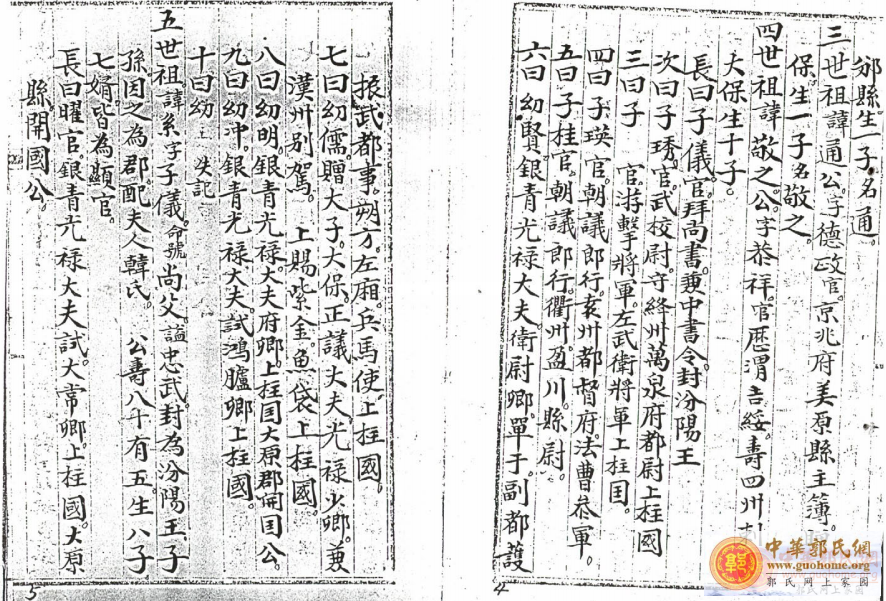 邠縣生一子名通。
三世祖諱通公字德政官京兆府美原縣主簿。
保生一子名敬之。
四世祖諱敬之公字恭祥。官歷渭吉綏壽四州
大保生十子。
長曰子儀官拜尚書兼中書令封汾陽王
次曰子琇官武校尉守絳州萬泉府都尉上柱國
三曰子 官游擊將軍左武衛將軍上柱国。
四曰子瑛官朝議郎行袁州都督府法曹恭軍。
五曰子桂官朝議郎行衢州盈川縣尉。
六曰幼賢銀青光禄大夫衛尉卿單于副都護
振武都事朔方左廂兵馬使上柱國。
七曰幼儒贈大子大保正議大夫光禄少卿兼
漢州别駕 上賜紫金魚袋上柱國。
八曰幼明銀青光禄大夫府卿上柱国大原郡開国公。
九曰幼冲銀青光禄大夫試鴻臚卿上柱國。
十曰幼 失記
五世祖諱 字子儀命號尚父謚忠武封為汾陽王子
孫因之為郡配夫人韓氏 公壽八十有五生八子
七婿皆為顯官。
長曰曜官銀青光禄大夫試大常卿上柱國大原
縣開國公。
4
5
中華郭氏網
www.guohome.org
郭氏网上家园